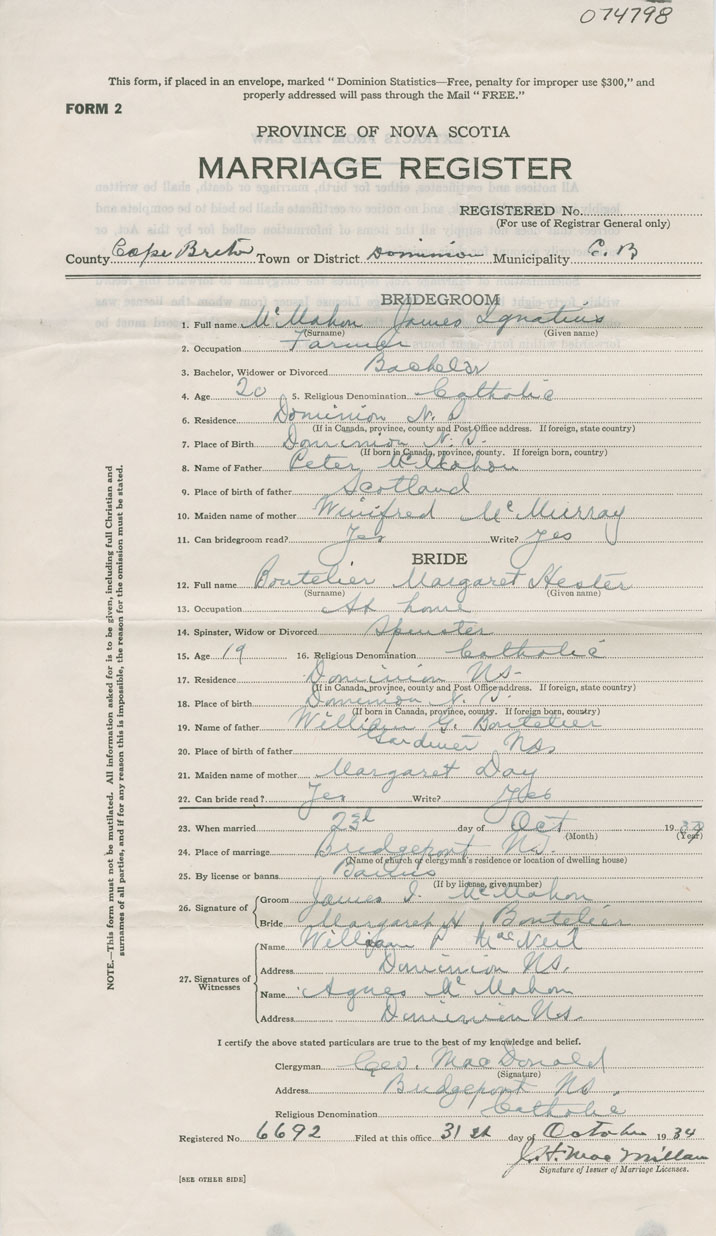 074798
This form, if placed in an envelope, marked " Dominion Statistics—Free, penalty for improper use $300," and
properly addressed will pass through the Mail " FREE."
FORM 2
PROVINCE OF NOVA SCOTIA
MARRIAGE REGISTER
REGISTERED No.
(For use of Registrar General only)
County Cape Breton Town or District Dominion Municipality C. B
BRIDEGROOM
1. Full name McMahon James Ignatius
(Surname) (Given name)
2. Occupation Farmer
3. Bachelor, Widower or Divorced Bachelor
4. Age 20 5. Religious Denomination Catholic
6. Residence Dominion N. S
(If in Canada, province, county and Post Office address. If foreign, state country)
7. Place of Birth Dominion N. S.
(If born in Canada, province, county. If foreign born, country)
8. Name of Father Peter McMahon
9. Place of birth of father Scotland
10. Maiden name of mother Winifred McMurray
11. Can bridegroom read? Yes Write? Yes
BRIDE
12. Full name Boutelier Margaret Hester
(Surname) (Given name)
13. Occupation At home
14. Spinster, Widow or Divorced Spinster
15. Age 19 16. Religious Denomination Catholic
17. Residence Dominion NS-
(If in Canada, province, county and Post Office address. If foreign, state country)
18. Place of birth Dominion N. S.
(If born in Canada, province, county. If foreign born, country)
19. Name of father William G. Boutelier
20. Place of birth of father Gardiner NS,
21. Maiden name of mother Margaret Day
22. Can bride read? Yes Write? Yes
23. When married 23d day of Oct 19
(Month) (Year)
24. Place of marriage Bridgeport NS.
(Name of church or clergyman's residence or location of dwelling house)
25. By license or banns
(If by license, give number)
26. Signature of Groom James I. McMahon
Bride Margaret H. Boutelier
27. Signatures of Witnesses
Name William P MacNeil
Address Dominion NS.
Name Agnes McMahon
Address Dominion NS.
I certify the above stated particulars are true to the best of my knowledge and belief.
Clergyman Geo. MacDonald
(Signature)
Address Bridgeport NS.
Religious Denomination Catholic
Registered No. 6692 Filed at this office 31st day of October 1934
J. H. MacMillan
Signature of Issuer of Marriage Licenses.
[SEE OTHER SIDE]
NOTE.—This form must not be mutilated. All information asked for is to be given, including full Christian and
surnames of all parties, and if for any reason this is impossible, the reason for the omission must be stated.